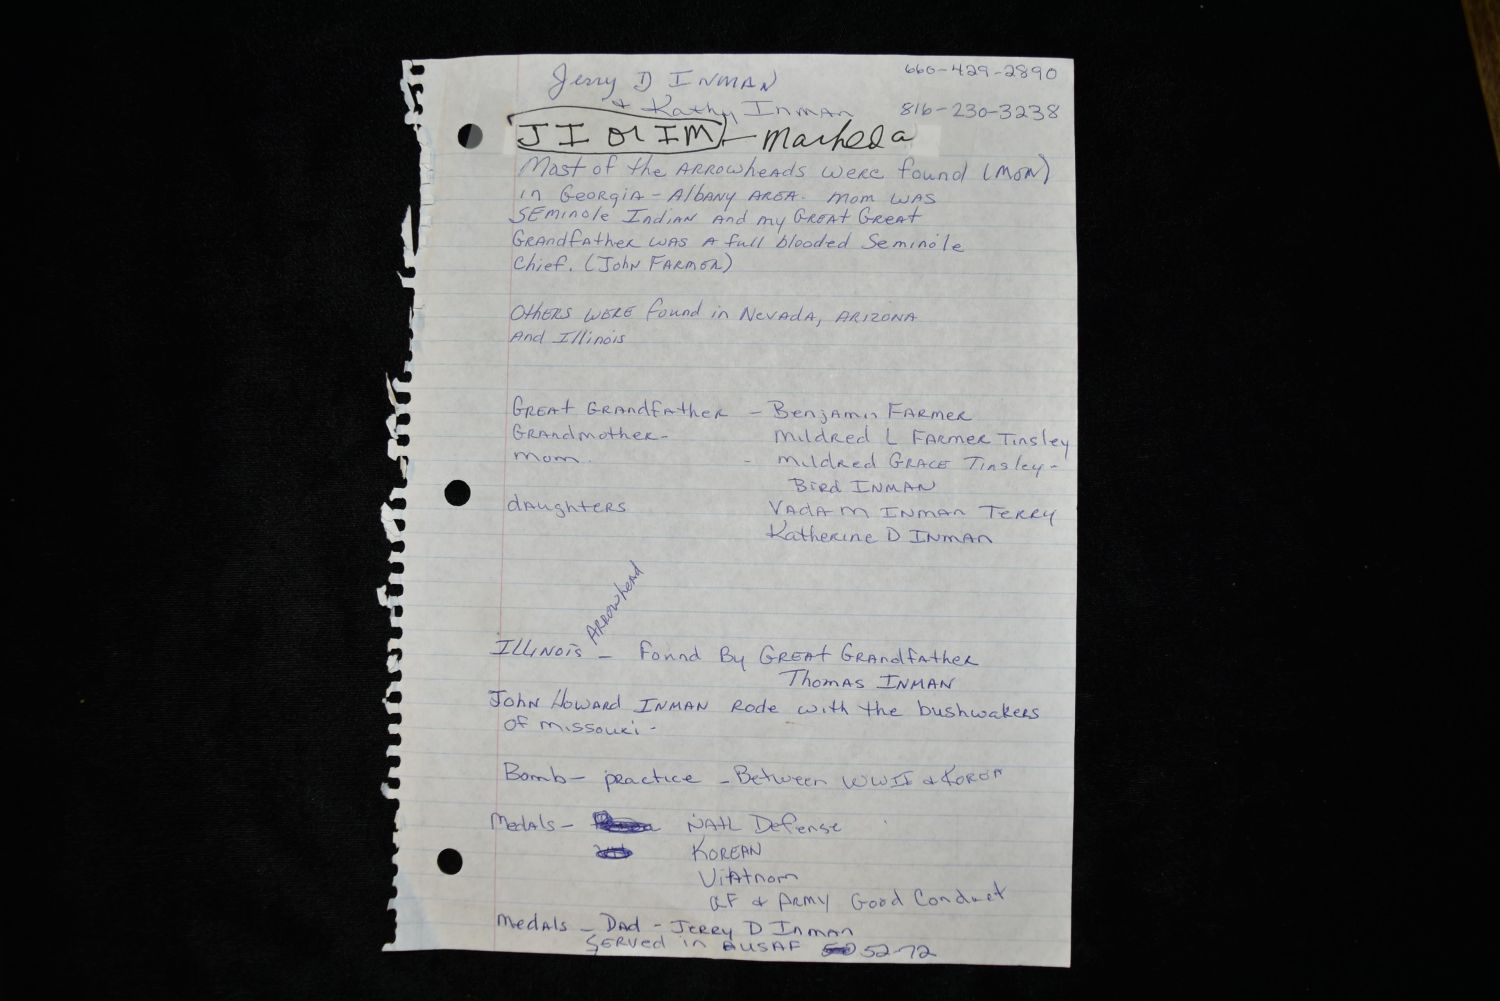 Jerry D INMAN 660-429-2890
+ Kathy Inman 816-230-3238
JI or IM - Marked a
Most of the ARROWheads were found (MOM)
in Georgia - Albany AREA. Mom was
SEminole Indian and my Great Great
Grandfather was a full blooded Seminole
Chief. (John FARMER)
OthERS WERE found in Nevada, ARIZONA
And Illinois
Great Grandfather - Benjamin FARMER
Grandmother - Mildred L FARMER Tinsley
Mom - Mildred GRACE Tinsley -
Bird INMAN
daughters Vada M INMAN TERRY
Katherine D INMAN
Arrowhead
ILLINOIS - found By Great Grandfather
Thomas INMAN
John Howard INMAN Rode with the bushwakers
of Missouri -
Bomb - practice - Between WWII & Korea
Medals - NATL Defense
KOREAN
Vitatnom
AF & ARMY Good Conduct
Medals - Dad - JERRY D INMAN
SERved in USAF 52-72